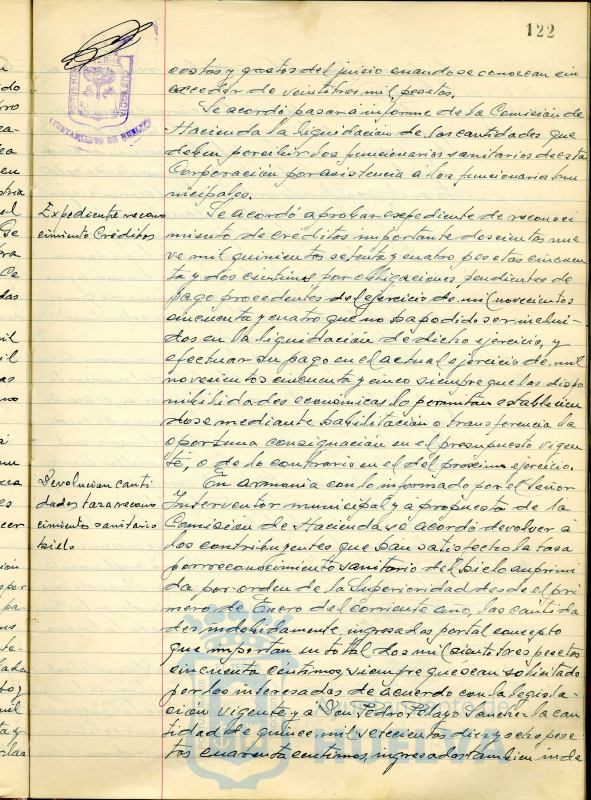 122
AYUNTAMIENTO DE HUELVA
costas y gastos del juicio cuando se conozcan sin
exceder de veintitres mil pesetas.
Se acordó pasar a informe de la Comisión de
Hacienda la liquidación de las cantidades que
deben percibir los funcionarios sanitarios de esta
Corporación por asistencia a los funcionarios mu
nicipales.
Expediente recono
cimiento Créditos
Se acordó aprobar expediente de reconoci
miento de créditos importante doscientos nue
ve mil quinientos setenta y cuatro pesetas cincuen
ta y dos centimos por obligaciones pendientes de
pago procedentes del ejercicio de mil novecientos
cincuenta y cuatro que no ha podido ser inclui-
dos en la liquidación de dicho ejercicio, y
efectuar su pago en el actual ejercicio de mil
novecientos cincuenta y cinco siempre que las dispo
nibilidades económicas lo permitan establecien
dose mediante habilitación o transferencia la
oportuna consignación en el presupuesto vigen
te, o de lo contrario en el del próximo ejercicio.
Devolucion canti
dades tasa recono
cimiento sanitario
hielo
En armonia con lo informado por el Señor
Interventor municipal y a propuesta de la
Comisión de Hacienda se acordó devolver á
los contribuyentes que han satisfecho la tasa
por reconocimiento sanitario del hielo suprimi
da por orden de la Superioridad desde el pri
mero de Enero del corriente año, las cantida
des indebidamente ingresadas por tal concepto
que importan en total dos mil ciento tres pesetas
cincuenta centimos, siempre que sean solicitado
por los interesados de acuerdo con la legisla-
ción vigente y a Don Pedro Pelayo Sanchez la can
tidad de quince mil setecientos diez y ocho pese
tas cuarenta centimos, ingresados tambien inde
Ayuntamiento de
HUELVA